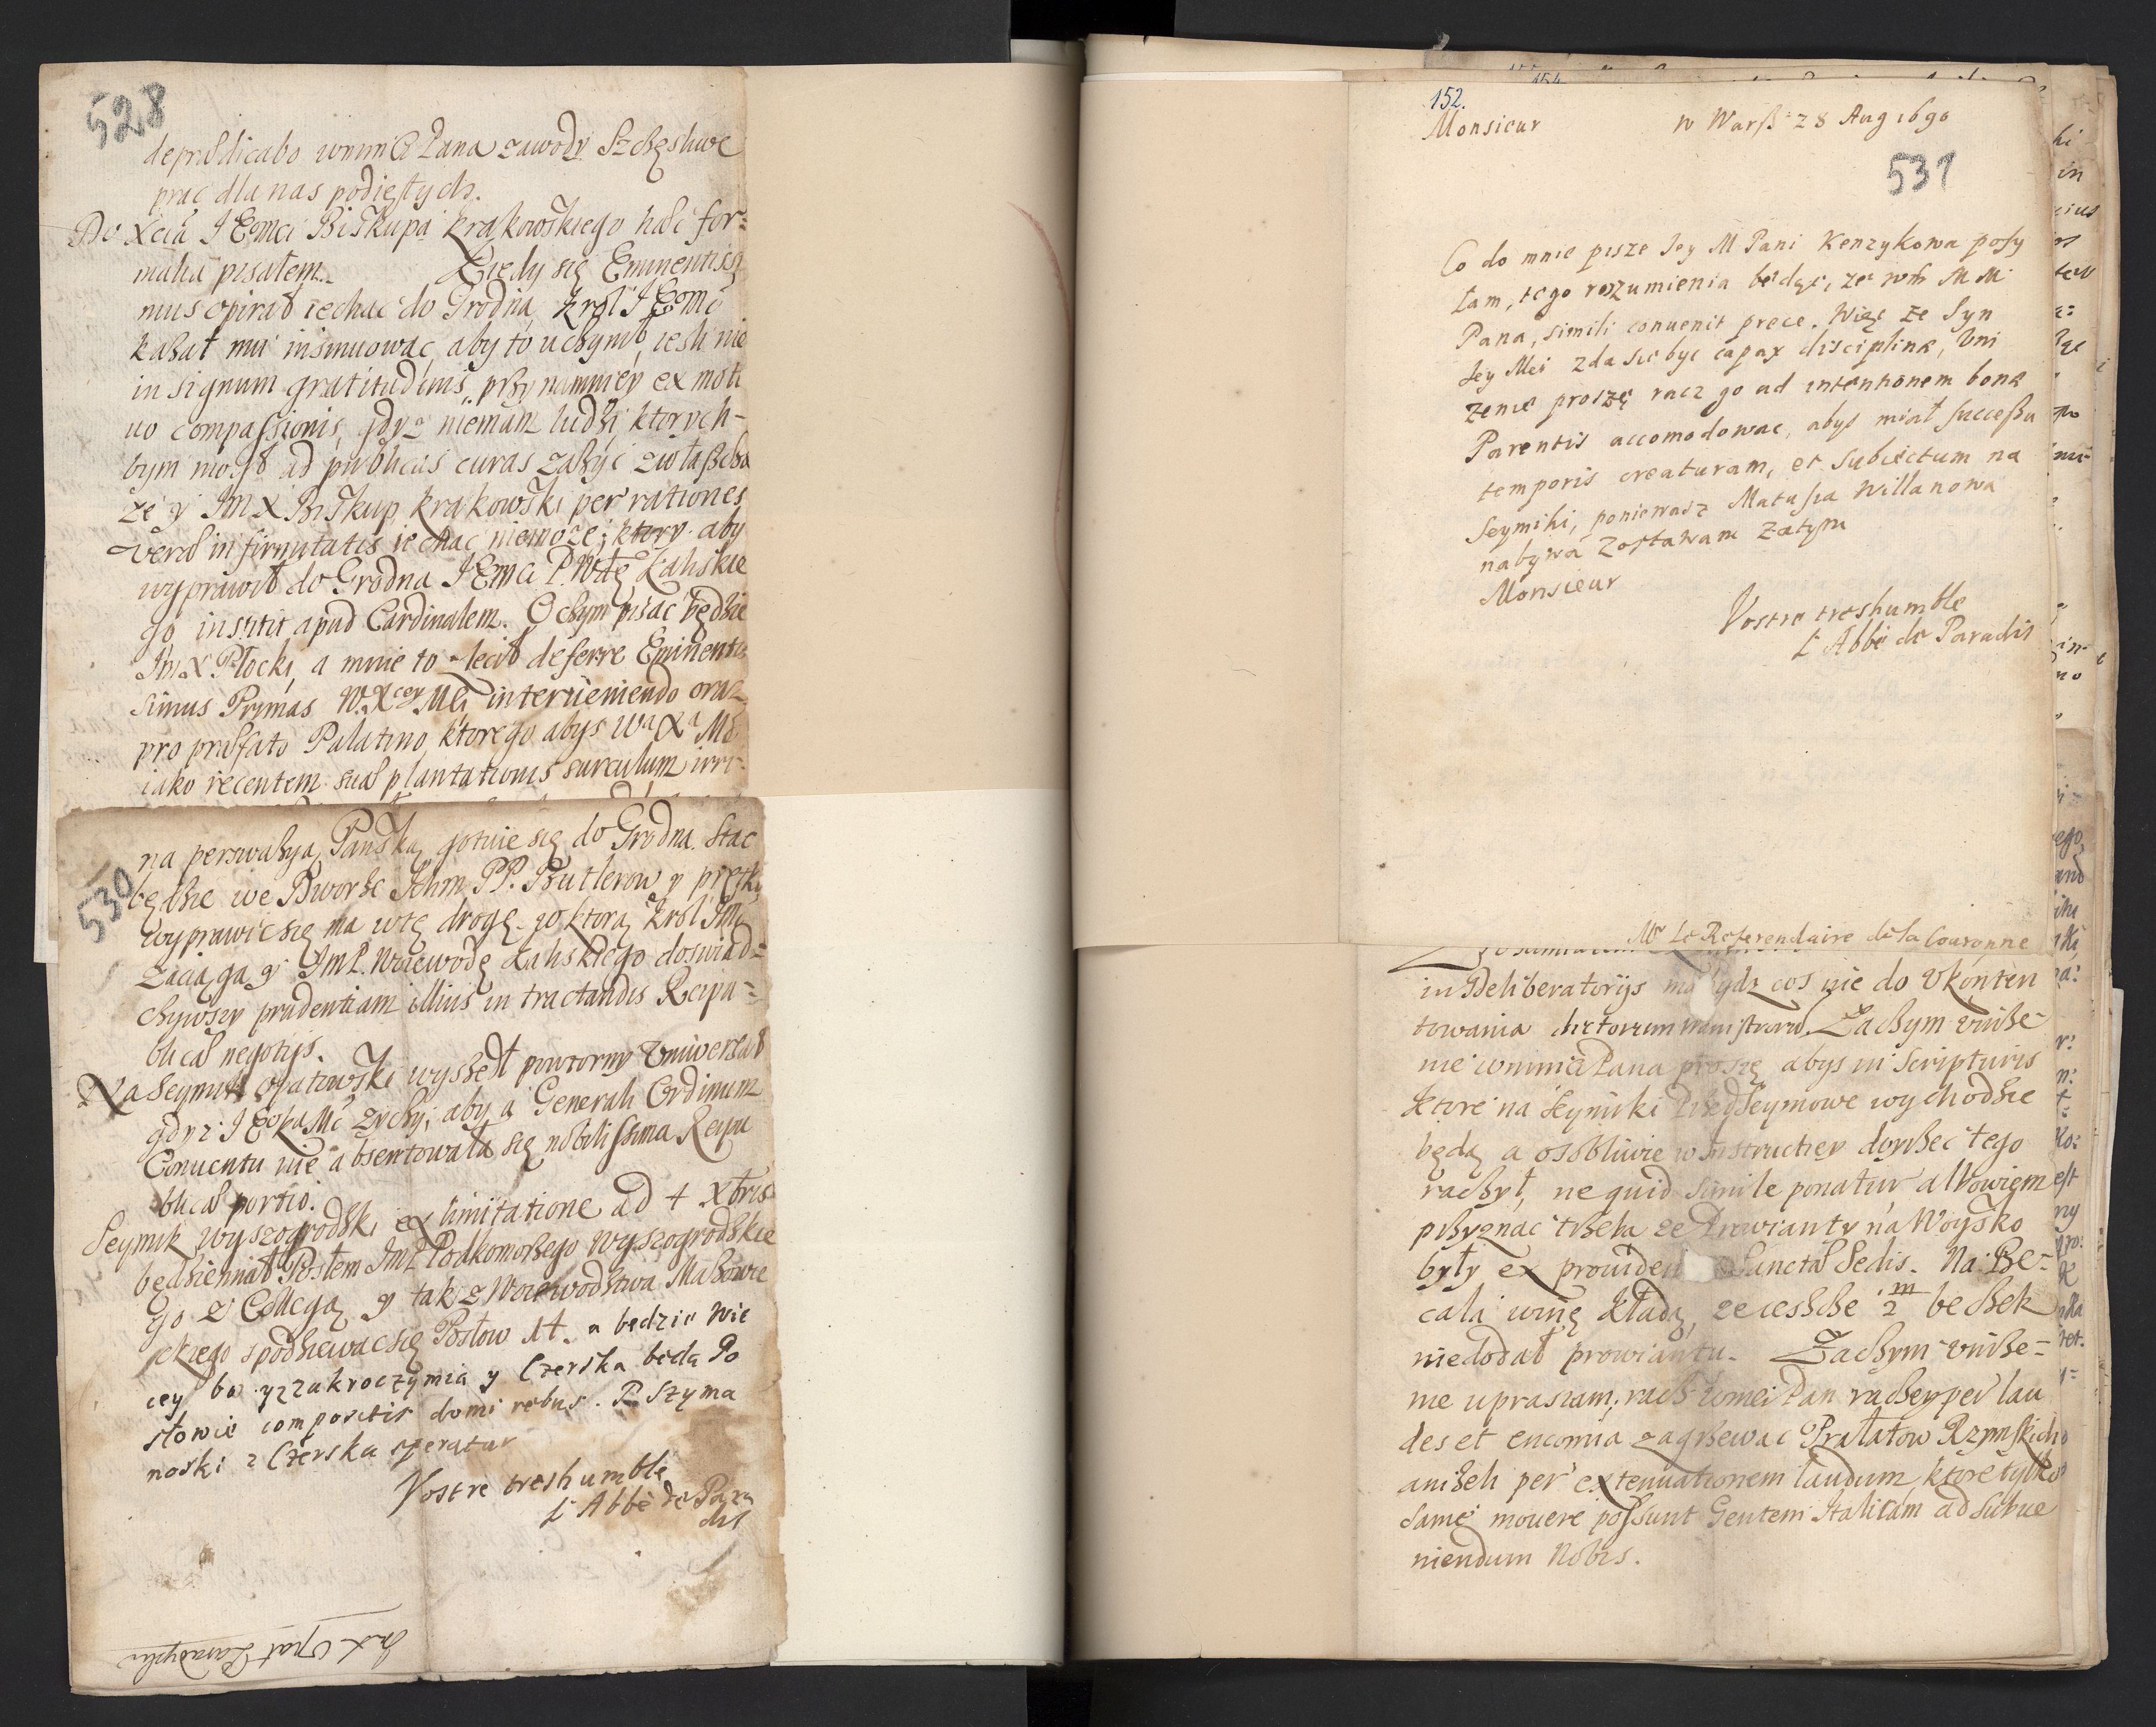 528
deprædicabo wmmći Pana zawody Szczęśliwe
prac dla nas podiętych.
Do Xcia JEomci Biskupa Krakowskiego hać for=
malia pisałem. Kiedy się Eminentissi
mus opirał iechac do Grodna, Krol JEomć
kazał mu insinuowac, aby to uczynił, iesli nie
in signum gratitudinis, przynamniey ex moti
uo compassionis, gdyz niemam ludzi ktorych-
bym mogł ad publicas curas zazyć zwłaszcza
ze y Jm X Biskup Krakowski per rationes
veræ infirmitatis iechac niemoze; ktory aby
wyprawił do Grodna JEmci P. Wdę Kaliskie
go institit apud Cardinalem. O czym pisac będzie
Jm X Płocki, a mnie to zlecił deferre Eminentis
simus Prymas W. Xcey Mći interueniendo oraz
pro præfato Palatino, ktorego abys Wa Xa Mć
iako recentem suæ plantationis surculum irri-
530
na perswazyą Panską gotuie się do Grodna. Stac
będzie we Dworze Ichm PP. Butlerow y prętko
wyprawic się ma w tę drogę, w ktorą Krol Jmć
zaciąga y JmP. Woiewodę Kaliskiego doswiad=
czywszy prudentiam illius in tractandis Reipu=
blicæ negotijs.
Na Seymik Opatowski wyszedł powtorny Vniwersał
gdyz JEoKaMć zyczy, aby a Generali Ordinum
Conuentu nie absentowała się nobilissima Reipu
blicæ portio.
Seymik wyszogrodzki ex limitatione ad 4 Xbris
będzie miał Posłem JmP. Podkomorzego Wyszogrodzkie
go z Collegą, y tak z Woiewodztwa Mazowie
ckiego spodziewac się Posłow 14. a będzie wie
cey bo y z Zakroczymia y Czerska będą Po
słowie compositis domi rebus. P. Szyma
noski z Czerska speratur
Vostre treshumble
L'Abbè de Para
dis
Jm X Opat Paradyski
152.
154
Monsieur w Warß 28 Aug 1690
531
Co do mnie pisze Jey M Pani Kenzykowa posy
łam, tego rozumienia będąc, ze wm M M
Pana, simili conuenit prece. Więc ze Syn
Jey Mci zda sie byc capax disciplinæ, Vni
zenie proszę racz go ad intentionem bonæ
Parentis accomodowac, abys miał successu
temporis creaturam, et subiectum na
Seymiki, poniewasz Matusia Willanowa
nabywa Zostawam zatym
Monsieur
Vostre treshumble
L'Abbè de Paradis
Mr Le Referendaire de la Couronne
in Deliberatorijs ma bydz cos nie do Vkonten
towania
nie wmmći Pana proszę abys in Scripturis
ktore na Seymiki Przedseymowe wychodzic
będą a osobliwie w Instructiey doyrzec tego
raczył, ne quid simile ponatur albowiem
przyznac trzeba ze Prowianty na Woysko
były ex prouiden Sanctæ Sedis. Na Be=
cala winę kładą, ze ieszcze 2 m beczek
niedodał prowiantu. Zaczym vniże=
nie upraszam, racz wmci Pan raczey per lau
des et encomia zagrzewac Prałatow Rzymskich
anizeli per extenuationem laudum, ktore tylko
same mouere possunt Gentem Italicam ad subue
niendum Nobis.